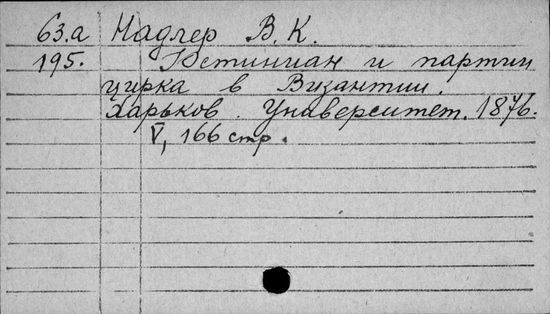 63.а Надлер В. К.
195. Юстиниан и партии
цирка в Византии.
Харьков. Университет. 1876.
V, 166 стр.